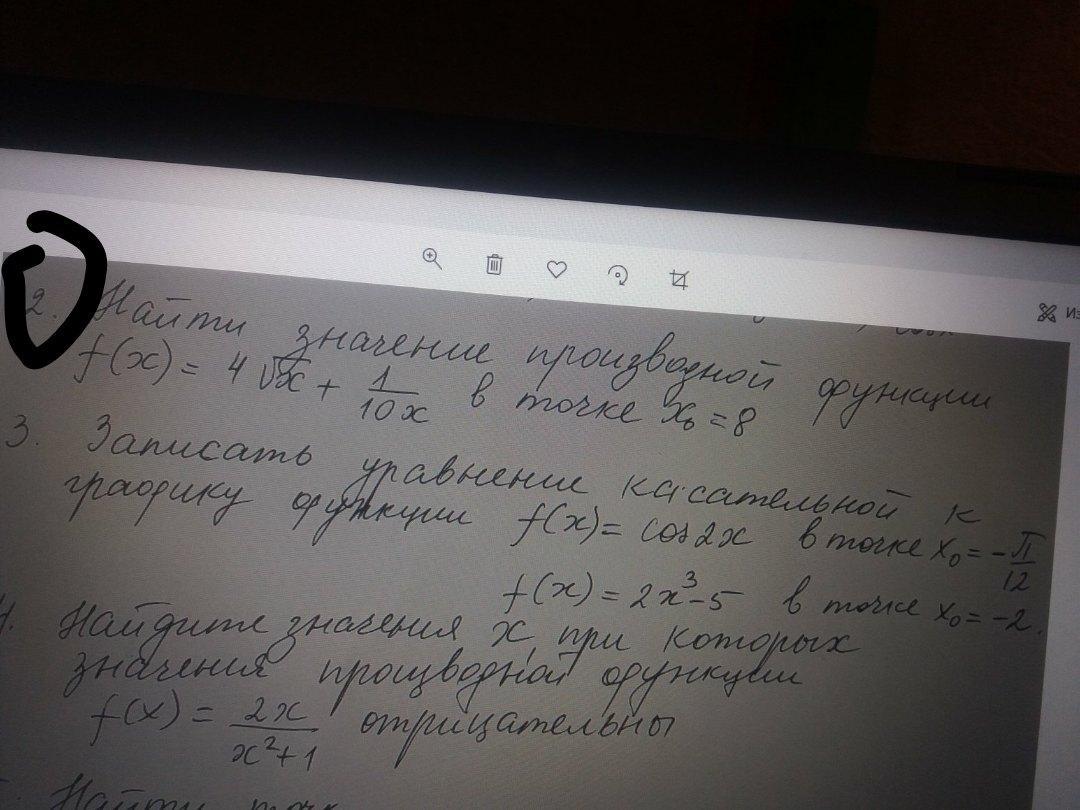 2. Найти значение производной функции
f(x) = 4√x + 1/10x в точке x₀ = 8
3. Записать уравнение касательной к
графику функции f(x) = cos2x в точке x₀ = -π/12
f(x) = 2x³-5 в точке x₀ = -2.
4. Найдите значения x, при которых
значения производной функции
f(x) = 2x/x²+1 отрицательны
Найти